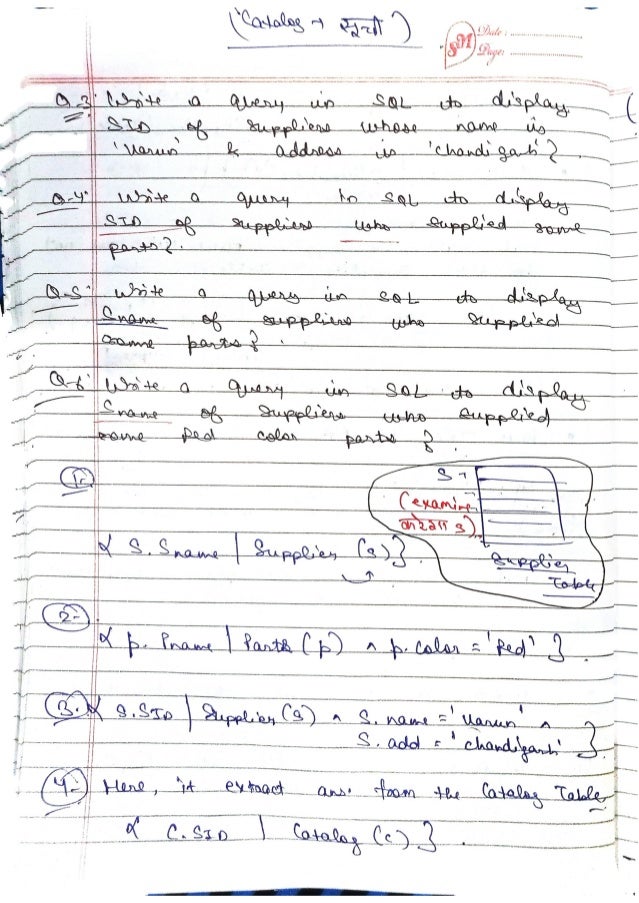 (Catalog → सूची)
SM Date : ............
Page: ............
Q.3 Write a query in SQL to display
SID of suppliers whose name is
'Varun' & address is 'chandigarh'?
Q-4 Write a query in SQL to display
SID of suppliers who supplied some
parts?
Q-5 Write a query in SQL to display
Sname of suppliers who supplied
some parts?
Q-6 Write a query in SQL to display
Sname of suppliers who supplied
some Red color parts?
1.
S →
(examine
करेगा s)
Supplier
Table
{ S.Sname | Supplier (s) }.
2-
{ p. Pname | Parts (p) ∧ p. color = 'Red' }.
3. { S.SID | Supplier (s) ∧ S. name = 'Varun' ∧
S. add = 'chandigarh' }.
4- Here, it extract ans. from the Catalog Table
{ C.SID | Catalog (c) }.